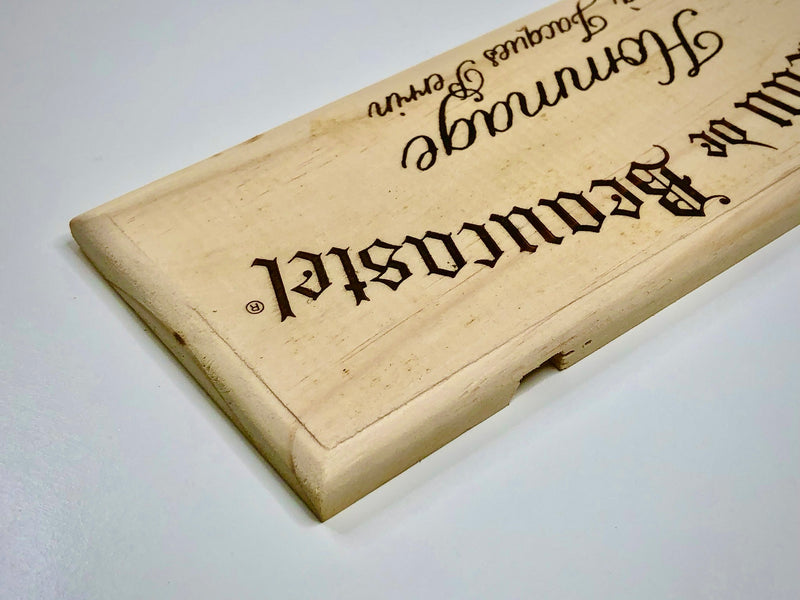 de Beaucastel®
Hommage
à Jacques Perrin